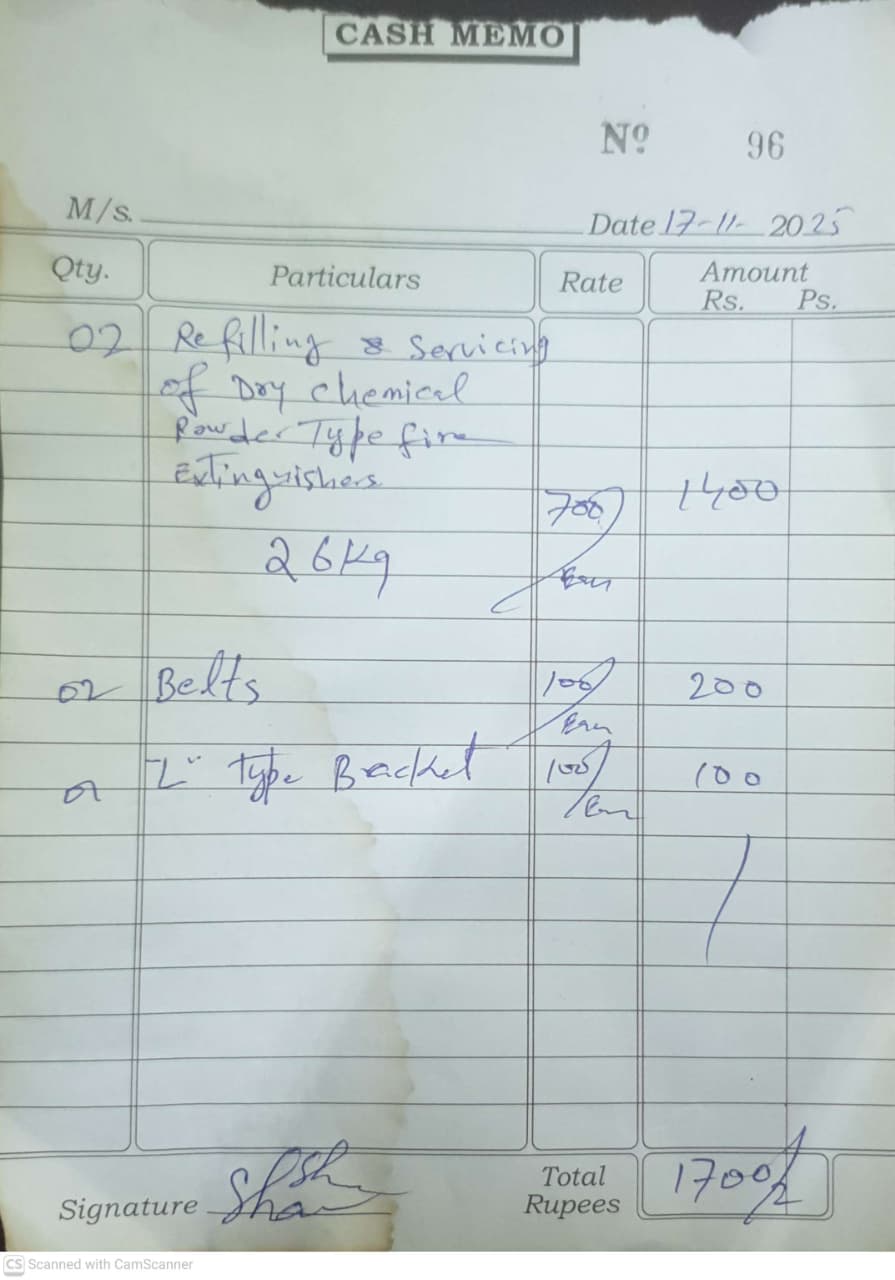 CASH MEMO
Nº 96
M/s.
Date 17-11- 2025
Qty. Particulars Rate Amount
Rs. Ps.
02 Refilling & Servicing
of Dry Chemical
Powder Type fire
Extinguishers
700/ 1400
26Kg
02 Belts 100/ 200
"L" Type Bracket 100/ 100
Total
Signature Rupees 1700/-
CS Scanned with CamScanner